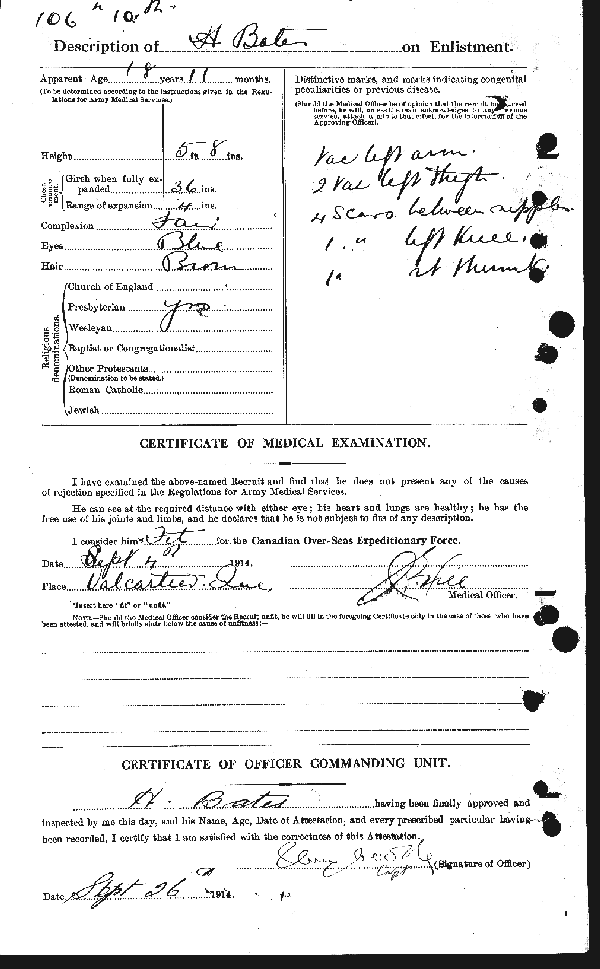 106th 10th
Description of H Bates on Enlistment.
Apparent Age 18 years 11 months.
(To be determined according to the instructions given in the Regulations for Army Medical Services.)
Height 5 ft 8 ins.
Chest measurement
Girth when fully expanded 36 ins.
Range of expansion 4 ins.
Complexion Fair
Eyes Blue
Hair Brown
Religious denominations.
Church of England
Presbyterian yes
Wesleyan
Baptist or Congregationalist
Other Protestants
(Denomination to be stated.)
Roman Catholic
Jewish
Distinctive marks, and marks indicating congenital
peculiarities or previous disease.
(Should the Medical Officer be of opinion that the recruit has served
before, he will, unless the man acknowledges to any previous
service, attach a slip to that effect, for the information of the
Approving Officer).
Vac left arm.
2 Vac left thigh.
4 Scars between nipples
1 " left Knee.
1 " rt thumb
CERTIFICATE OF MEDICAL EXAMINATION.
I have examined the above-named Recruit and find that he does not present any of the causes
of rejection specified in the Regulations for Army Medical Services.
He can see at the required distance with either eye; his heart and lungs are healthy; he has the
free use of his joints and limbs, and he declares that he is not subject to fits of any description.
I consider him* Fit for the Canadian Over-Seas Expeditionary Force.
Date Sept 4 1914.
Place Valcartier. Que
Medical Officer.
*Insert here "fit" or "unfit."
NOTE.—Should the Medical Officer consider the Recruit unfit, he will fill in the foregoing Certificate only in the case of those who have
been attested, and will briefly state below the cause of unfitness:—
CERTIFICATE OF OFFICER COMMANDING UNIT.
H. Bates having been finally approved and
inspected by me this day, and his Name, Age, Date of Attestation, and every prescribed particular having
been recorded, I certify that I am satisfied with the correctness of this Attestation.
Capt (Signature of Officer)
Date Sept 26th 1914.